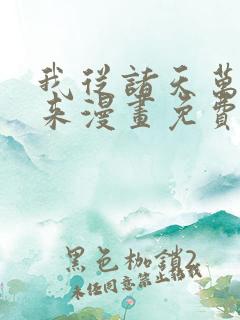 我從諸天萬
來漫畫免費
黑色枷鎖2
未經同意禁止轉載